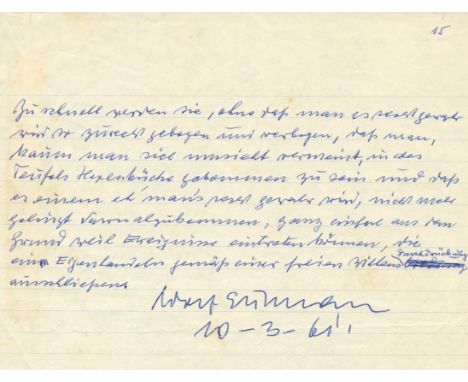 15
Zu schnell werden sie, ohne daß man es recht gewahr
wird so zurecht gebogen und verbogen, daß man,
kaum man sich umsieht vermeint, in des
Teufels Hexenküche gekommen zu sein und daß
es einem eh' man's recht gewahr wird, nicht mehr
gelingt davon abzukommen, ganz einfach aus dem
Grund weil Ereignisse eintreten können, die
ein Eigenhandeln gemäß einer freien Willens
ausschliessen.
Adolf Eichmann
10-3-61.